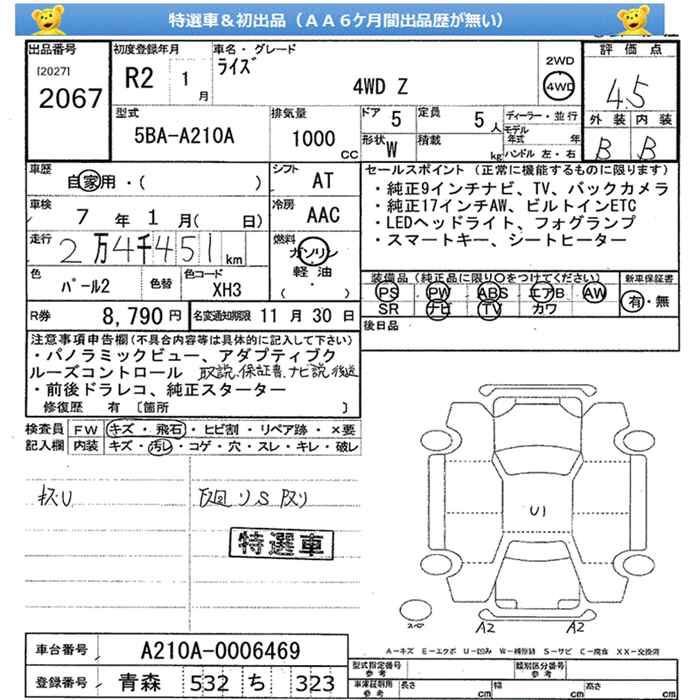 特選車＆初出品（ＡＡ６ケ月間出品歴が無い）
出品番号
[2027]
2067
初度登録年月
R2 1 月
車名・グレード
ライズ
4WD Z
2WD
4WD
評価点
4.5
外装 内装
B B
型式
5BA-A210A
排気量
1000 cc
ドア 5
定員 5 人
形状 W
積載 kg
ディーラー・並行
モデル年式 年
ハンドル 左・右
車歴
自家用・( )
シフト
AT
車検
7 年 1 月( 日)
冷房
AAC
走行
2万4千451 km
燃料
ガソリン
軽油
( )
色
パール2
色替
色コード
XH3
R券 8,790 円
名変通知期限 11 月 30 日
セールスポイント(正常に機能するものに限ります)
・純正9インチナビ、TV、バックカメラ
・純正17インチAW、ビルトインETC
・LEDヘッドライト、フォグランプ
・スマートキー、シートヒーター
装備品(純正品に限り○をつけてください)
新車保証書
PS PW ABS エアB AW
SR ナビ TV カワ
有・無
後日品
注意事項申告欄(不具合内容等は具体的に記入して下さい)
・パノラミックビュー、アダプティブク
ルーズコントロール 取説、保証書、ナビ説後送
・前後ドラレコ、純正スターター
修復歴 有〔箇所 〕
検査員 FW キズ・飛石・ヒビ割・リペア跡・×要
記入欄 内装 キズ・汚レ・コゲ・穴・スレ・キレ・破レ
特選車
U1
A2 A2
A-キズ E-エクボ U-凹み W-補修跡 S-サビ C-腐食 XX-交換済
車台番号 A210A-0006469
登録番号 青森 532 ち 323
型式指定番号
参考
類別区分番号
参考
車庫証明用
参考
長さ cm
幅 cm
高さ cm